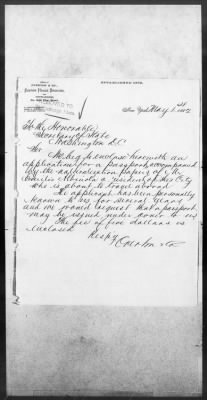 ESTABLISHED 1872.
New York, May 1st
To the Honorable
Secretary of State
Washington D.C.
Sir
We beg to enclose herewith an
application for a passport accompanied
by the naturalization papers of Mr
a resident of this City
who is about to travel abroad
The applicant has been personally
known to us for several years
and we would request that a passport
may be issued under cover to us
The fee of five dollars is
enclosed
Respy